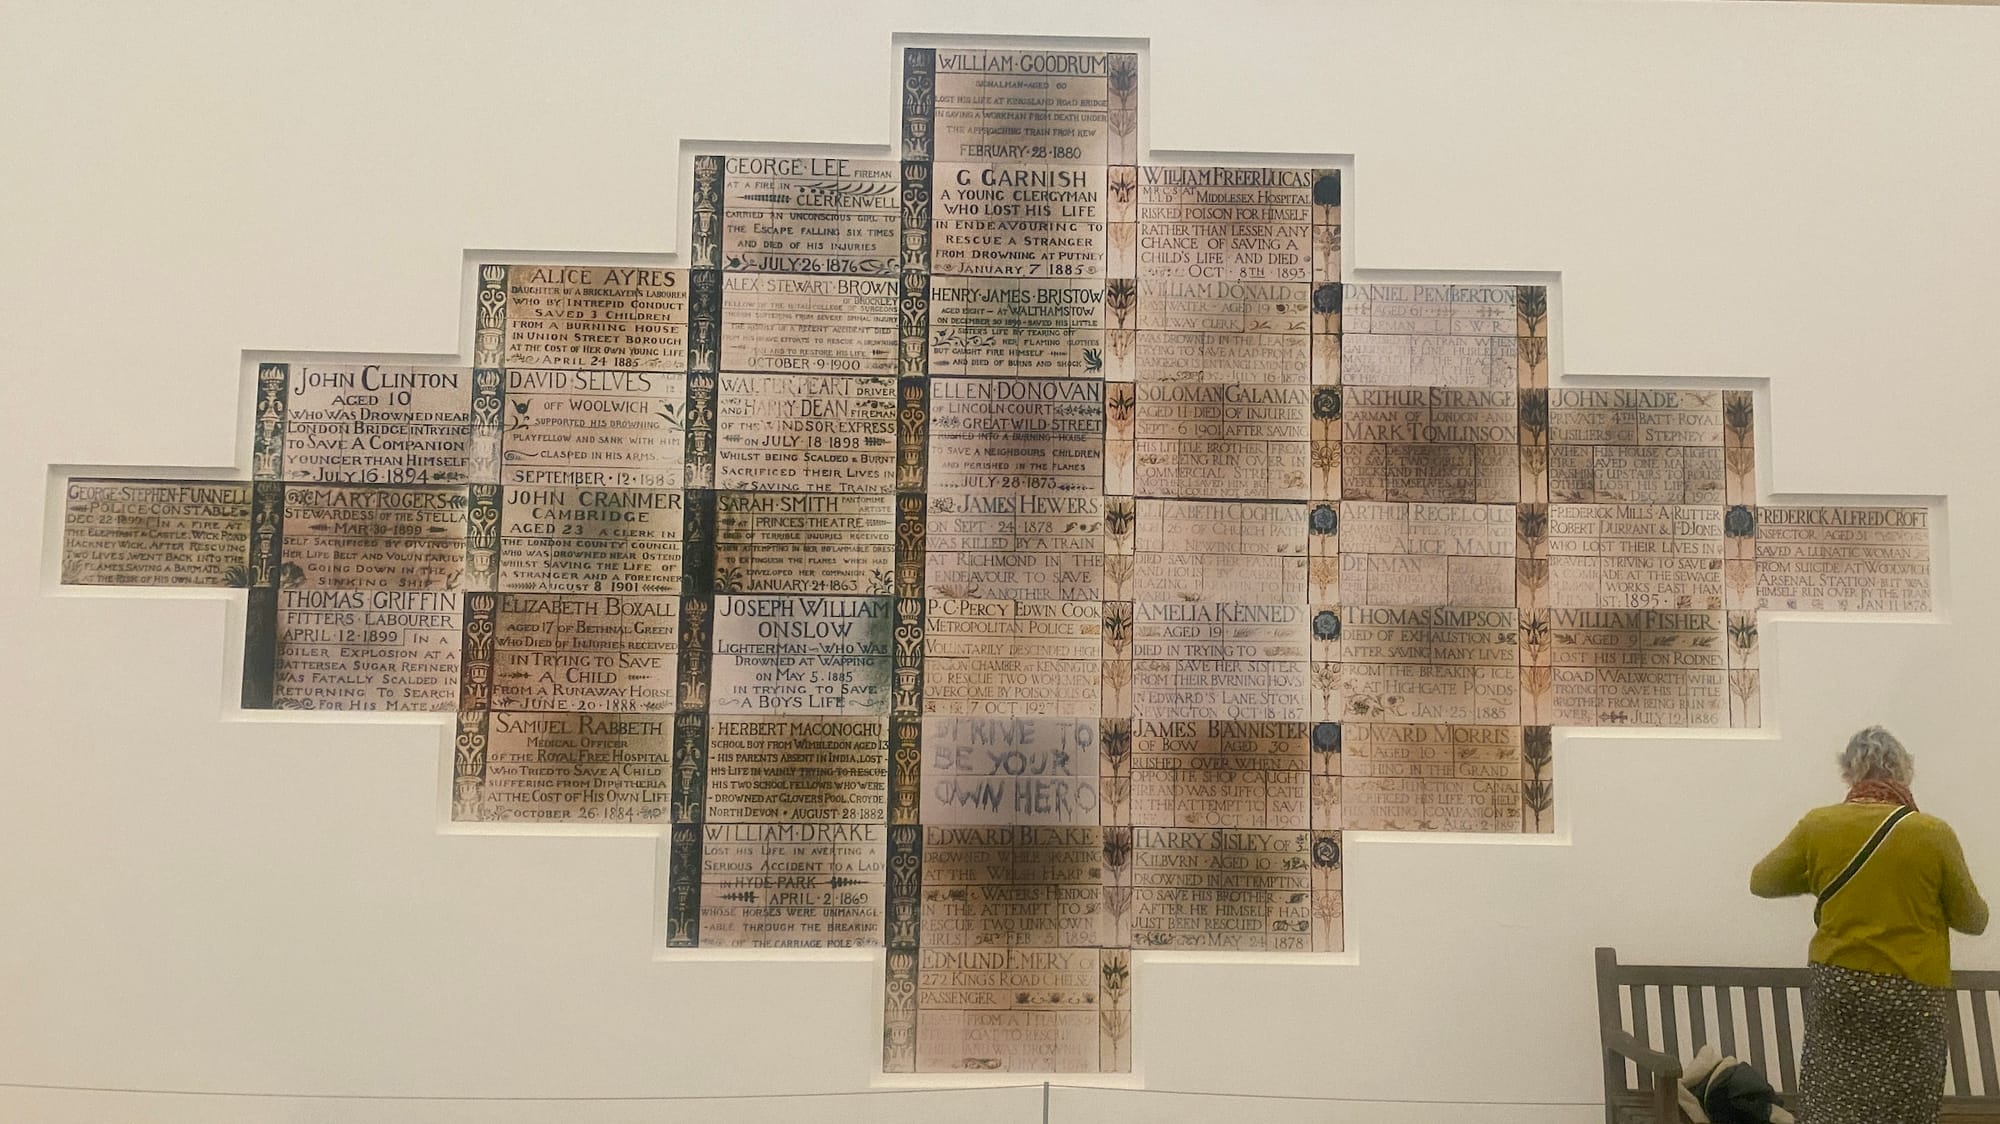 WILLIAM·GOODRUM
SIGNALMAN·AGED 60
LOST HIS LIFE AT KINGSLAND ROAD BRIDGE
IN SAVING A WORKMAN FROM DEATH UNDER
THE APPROACHING TRAIN FROM KEW
FEBRUARY·28·1880
GEORGE·LEE FIREMAN
AT A FIRE IN
CLERKENWELL
CARRIED AN UNCONSCIOUS GIRL TO
THE ESCAPE FALLING SIX TIMES
AND DIED OF HIS INJURIES
JULY·26·1876
G GARNISH
A YOUNG CLERGYMAN
WHO LOST HIS LIFE
IN ENDEAVOURING TO
RESCUE A STRANGER
FROM DROWNING AT PUTNEY
JANUARY 7 1885
WILLIAM FREER LUCAS
M.R.C.S. L.L.D AT MIDDLESEX HOSPITAL
RISKED POISON FOR HIMSELF
RATHER THAN LESSEN ANY
CHANCE OF SAVING A
CHILD'S LIFE AND DIED
OCT · 8TH · 1893
ALICE AYRES
DAUGHTER OF A BRICKLAYER'S LABOURER
WHO BY INTREPID CONDUCT
SAVED 3 CHILDREN
FROM A BURNING HOUSE
IN UNION STREET BOROUGH
AT THE COST OF HER OWN YOUNG LIFE
APRIL 24 1885
ALEX·STEWART·BROWN
OF BROCKLEY
FELLOW OF THE ROYAL COLLEGE OF SURGEONS
THOUGH SUFFERING FROM SEVERE SPINAL INJURY
THE RESULT OF A RECENT ACCIDENT DIED
FROM HIS BRAVE EFFORTS TO RESCUE A DROWNING
MAN AND TO RESTORE HIS LIFE
OCTOBER·9·1900
HENRY·JAMES·BRISTOW
AGED EIGHT – AT WALTHAMSTOW
ON DECEMBER 30 1890 · SAVED HIS LITTLE
SISTER'S LIFE BY TEARING OFF
HER FLAMING CLOTHES
BUT CAUGHT FIRE HIMSELF
AND DIED OF BURNS AND SHOCK
WILLIAM DONALD OF
BAYSWATER · AGED 19
RAILWAY CLERK
WAS DROWNED IN THE LEA
TRYING TO SAVE A LAD FROM A
DANGEROUS ENTANGLEMENT OF
JULY 16 1876
DANIEL PEMBERTON
AGED 61
FOREMAN L S W R
BY A TRAIN WHEN
THE LINE HURLED HIS
JAN 17
JOHN CLINTON
AGED 10
WHO WAS DROWNED NEAR
LONDON BRIDGE IN TRYING
TO SAVE A COMPANION
YOUNGER THAN HIMSELF
JULY 16·1894
DAVID·SELVES AGED
OFF WOOLWICH
SUPPORTED HIS DROWNING
PLAYFELLOW AND SANK WITH HIM
CLASPED IN HIS ARMS
SEPTEMBER·12·1886
WALTER PEART DRIVER
AND HARRY DEAN FIREMAN
OF THE WINDSOR EXPRESS
ON JULY·18·1898
WHILST BEING SCALDED & BURNT
SACRIFICED THEIR LIVES IN
SAVING THE TRAIN
ELLEN·DONOVAN
OF LINCOLN COURT
GREAT WILD·STREET
RUSHED INTO A BURNING HOUSE
TO SAVE A NEIGHBOURS CHILDREN
AND PERISHED IN THE FLAMES
JULY·28·1873
SOLOMAN GALAMAN
AGED 11 DIED OF INJURIES
SEPT · 6 1901 AFTER SAVING
HIS LITTLE BROTHER FROM
BEING RUN OVER IN
COMMERCIAL STREET
MOTHER I SAVED HIM BUT I
COULD NOT SAVE
ARTHUR STRANGE
CARMAN OF LONDON AND
MARK TOMLINSON
ON A DESPERATE VENTURE
TO SAVE TWO GIRLS FROM A
QUICKSAND IN LINCOLN
WERE THEMSELVES ENGULFED
AUG 25
JOHN SLADE
PRIVATE 4TH BATT·ROYAL
FUSILIERS OF STEPNEY
WHEN HIS HOUSE CAUGHT
FIRE SAVED ONE MAN AND
DASHING UPSTAIRS TO ROUSE
OTHERS LOST HIS LIFE
DEC·26·1902
GEORGE·STEPHEN·FUNNELL
POLICE·CONSTABLE
DEC·22·1899 IN A FIRE AT
THE ELEPHANT & CASTLE, WICK ROAD
HACKNEY WICK, AFTER RESCUING
TWO LIVES, WENT BACK INTO THE
FLAMES, SAVING A BARMAID
AT THE RISK OF HIS OWN LIFE
MARY ROGERS
STEWARDESS OF THE STELLA
MAR·30·1899
SELF SACRIFICED BY GIVING UP
HER LIFE BELT AND VOLUNTARILY
GOING DOWN IN THE
SINKING SHIP
JOHN CRANMER
CAMBRIDGE
AGED 23 A CLERK IN
THE LONDON COUNTY COUNCIL
WHO WAS DROWNED NEAR OSTEND
WHILST SAVING THE LIFE OF
A STRANGER AND A FOREIGNER
AUGUST 8 1901
SARAH·SMITH PANTOMIME ARTISTE
AT PRINCES·THEATRE
DIED OF TERRIBLE INJURIES RECEIVED
WHEN ATTEMPTING IN HER INFLAMMABLE DRESS
TO EXTINGUISH THE FLAMES WHICH HAD
ENVELOPED HER COMPANION
JANUARY·24·1863
JAMES HEWERS
ON SEPT · 24 1878
WAS KILLED BY A TRAIN
AT RICHMOND IN THE
ENDEAVOUR TO SAVE
ANOTHER MAN
ELIZABETH COGHLAM
OF CHURCH PATH
NEWINGTON
DIED SAVING
AND HOUSE
BLAZING
ARTHUR REGELOUS
LITTLE PETER
ALICE MAUD
DENMAN
FREDERICK MILLS·A·RUTTER
ROBERT DURRANT & F.D.JONES
WHO LOST THEIR LIVES IN
BRAVELY STRIVING TO SAVE
A COMRADE AT THE SEWAGE
WORKS EAST HAM
1ST · 1895
FREDERICK ALFRED CROFT
INSPECTOR AGED 31
SAVED A LUNATIC WOMAN
FROM SUICIDE AT WOOLWICH
ARSENAL STATION·BUT WAS
HIMSELF RUN OVER BY THE TRAIN
JAN 11·1878
THOMAS GRIFFIN
FITTERS·LABOURER
APRIL·12·1899 IN A
BOILER EXPLOSION AT A
BATTERSEA SUGAR REFINERY
WAS FATALLY SCALDED IN
RETURNING TO SEARCH
FOR HIS MATE
ELIZABETH BOXALL
AGED 17 OF BETHNAL GREEN
WHO DIED OF INJURIES RECEIVED
IN TRYING TO SAVE
A CHILD
FROM A RUNAWAY HORSE
JUNE·20·1888
JOSEPH WILLIAM
ONSLOW
LIGHTERMAN – WHO WAS
DROWNED AT WAPPING
ON MAY 5·1885
IN TRYING TO SAVE
A BOYS LIFE
P·C·PERCY EDWIN COOK
METROPOLITAN POLICE
VOLUNTARILY DESCENDED HIGH
TENSION CHAMBER AT KENSINGTON
TO RESCUE TWO WORKMEN
OVERCOME BY POISONOUS GAS
7 OCT 1927
AMELIA KENNEDY
AGED 19
DIED IN TRYING TO
SAVE HER SISTER
FROM THEIR BURNING HOUSE
IN EDWARD'S LANE STOKE
NEWINGTON OCT·18·187
THOMAS SIMPSON
DIED OF EXHAUSTION
AFTER SAVING MANY LIVES
FROM THE BREAKING ICE
AT HIGHGATE PONDS
JAN·25·1885
WILLIAM FISHER
AGED 9
LOST HIS LIFE ON RODNEY
ROAD WALWORTH WHILE
TRYING TO SAVE HIS LITTLE
BROTHER FROM BEING RUN
OVER JULY·12·1886
SAMUEL RABBETH
MEDICAL OFFICER
OF THE ROYAL FREE HOSPITAL
WHO TRIED TO SAVE A CHILD
SUFFERING FROM DIPHTHERIA
AT THE COST OF HIS OWN LIFE
OCTOBER 26·1884
HERBERT MACONOGHU
SCHOOL BOY FROM WIMBLEDON AGED 13
HIS PARENTS ABSENT IN INDIA, LOST
HIS LIFE IN VAINLY TRYING TO RESCUE
HIS TWO SCHOOL FELLOWS WHO WERE
DROWNED AT GLOVERS POOL, CROYDE,
NORTH DEVON · AUGUST·28·1882
STRIVE TO
BE YOUR
OWN HERO
JAMES BANNISTER
OF BOW AGED 30
RUSHED OVER WHEN AN
OPPOSITE SHOP CAUGHT
FIRE AND WAS SUFFOCATED
IN THE ATTEMPT TO SAVE
LIFE OCT·14·1901
EDWARD MORRIS
AGED 10
BATHING IN THE GRAND
JUNCTION CANAL
SACRIFICED HIS LIFE TO HELP
HIS SINKING COMPANION
AUG·2·1897
WILLIAM·DRAKE
LOST HIS LIFE IN AVERTING A
SERIOUS ACCIDENT TO A LADY
IN HYDE·PARK
APRIL·2·1869
WHOSE HORSES WERE UNMANAGE-
-ABLE THROUGH THE BREAKING
OF THE CARRIAGE POLE
EDWARD BLAKE
DROWNED WHILE SKATING
AT THE WELSH HARP
WATERS·HENDON
IN THE ATTEMPT TO
RESCUE TWO UNKNOWN
GIRLS FEB·5·1895
HARRY SISLEY OF
KILBURN·AGED 10
DROWNED IN ATTEMPTING
TO SAVE HIS BROTHER
AFTER HE HIMSELF HAD
JUST BEEN RESCUED
MAY 24 1878
EDMUND EMERY OF
272 KING'S ROAD CHELSEA
PASSENGER
LEAPT FROM A THAMES
STEAMBOAT TO RESCUE
CHILD AND WAS DROWNED